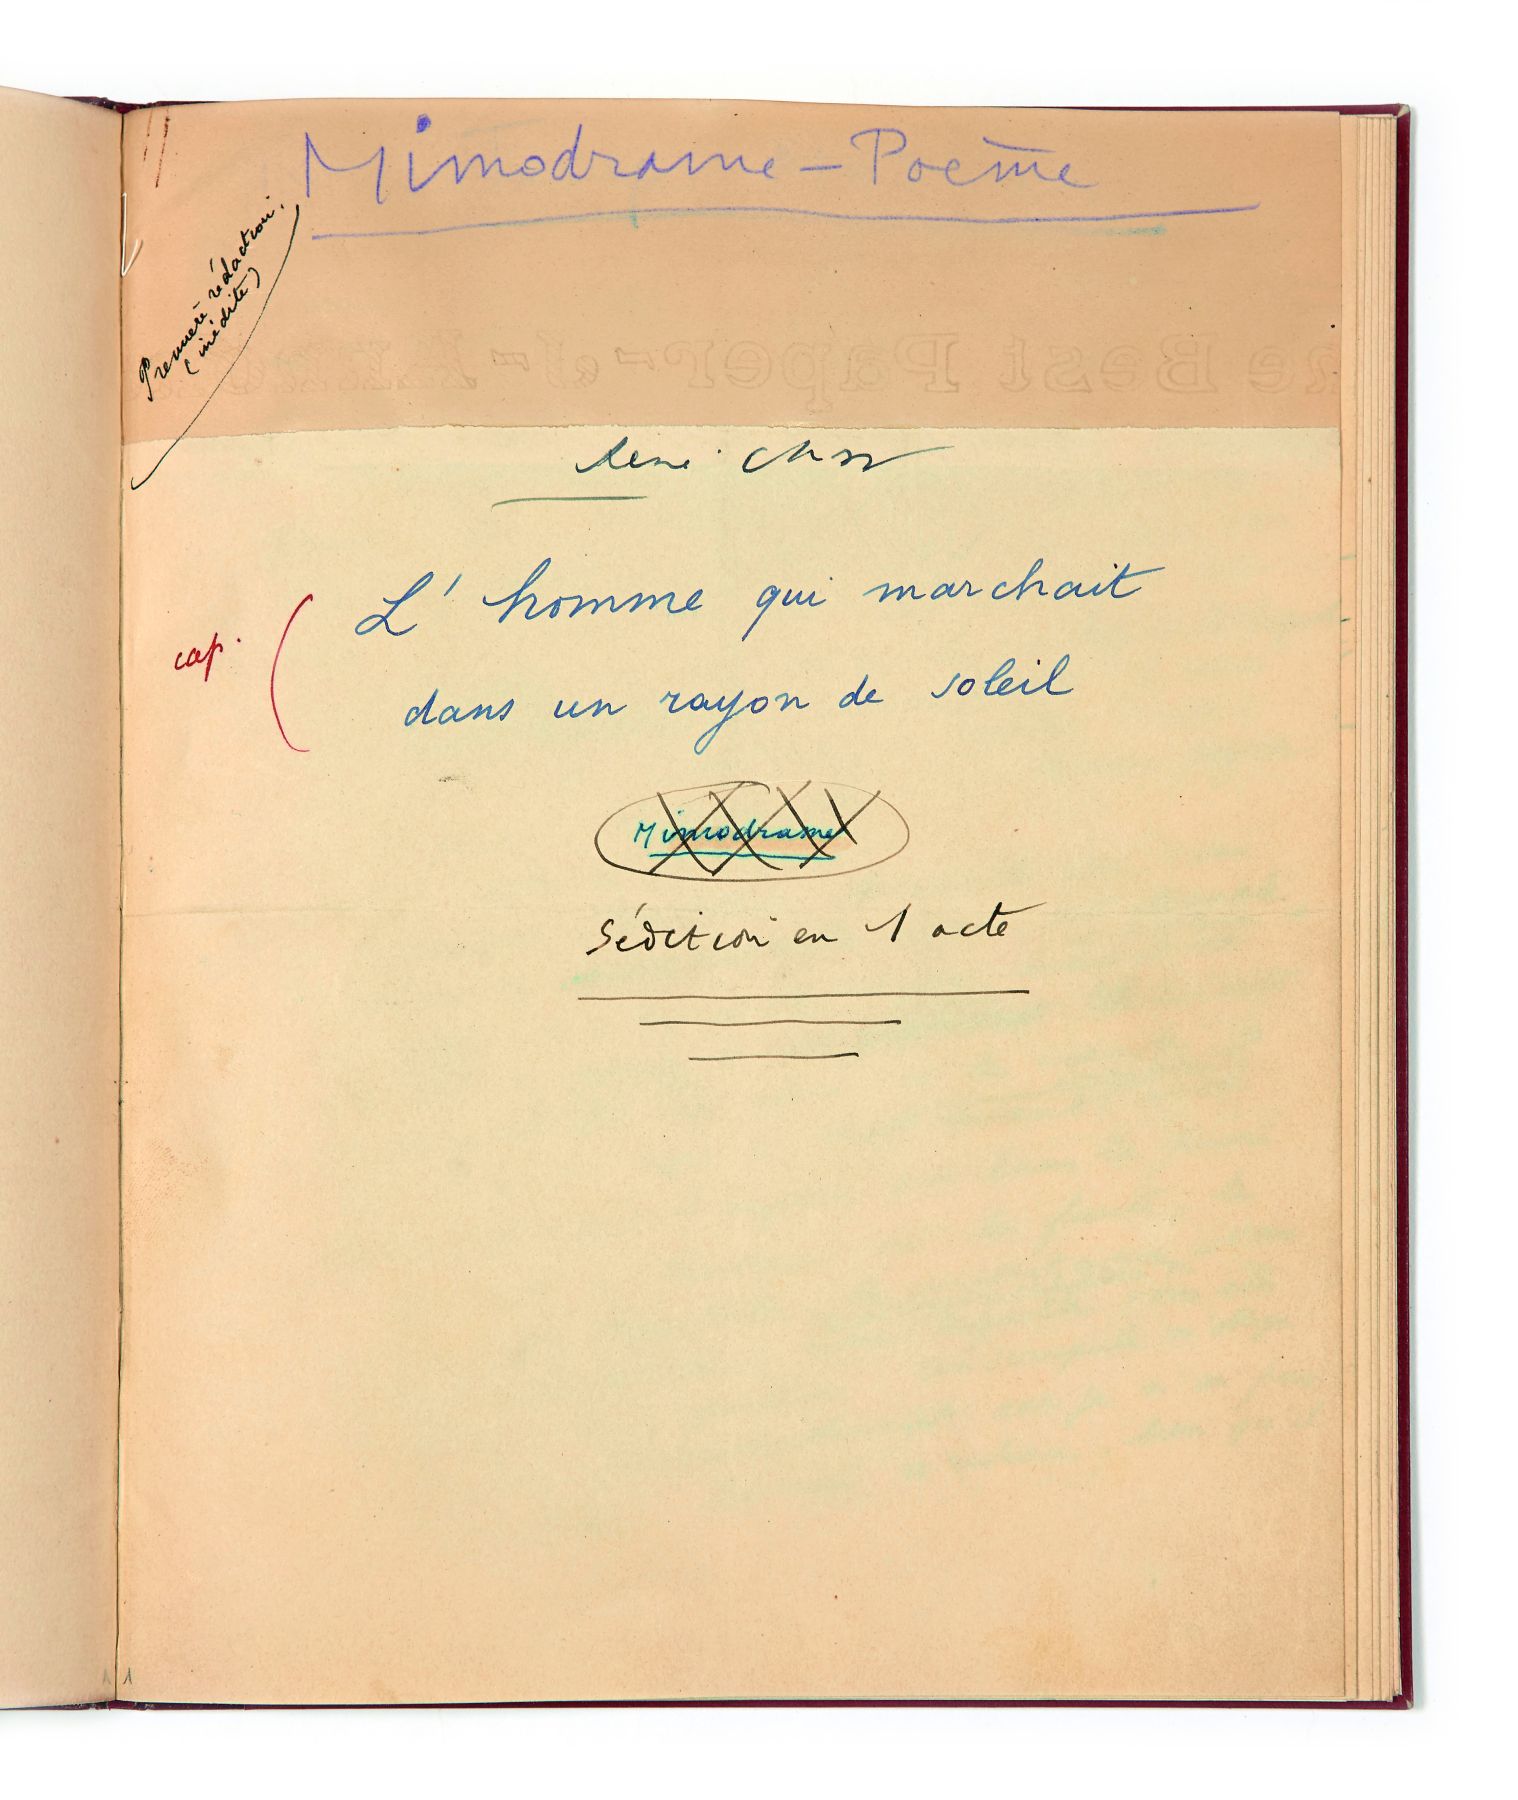 Mimodrame – Poème
Première rédaction.
(inédite)
René Char
L'homme qui marchait
cap.
dans un rayon de soleil
Mimodrame
Sédition en 1 acte
1